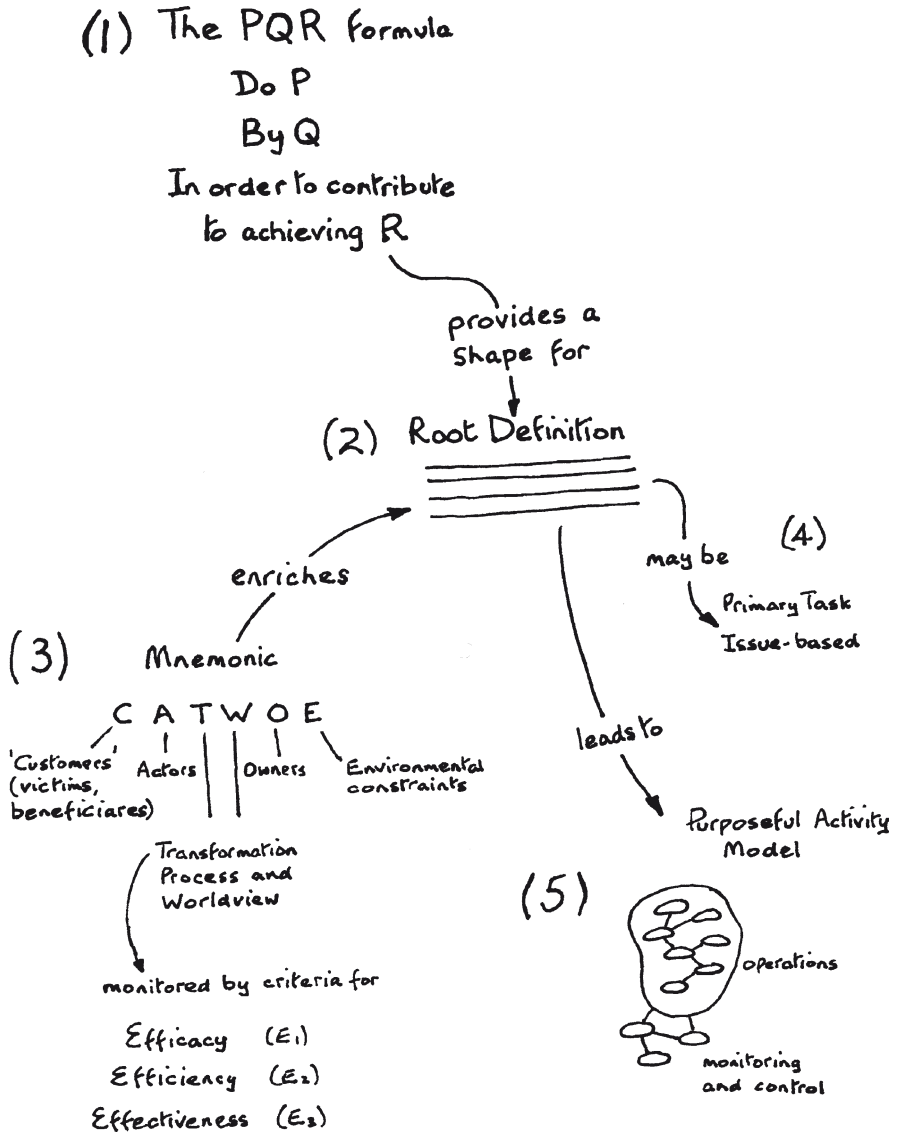 (1) The PQR formula
Do P
By Q
In order to contribute
to achieving R
provides a
shape for
(2) Root Definition
(4)
may be
Primary Task
Issue-based
enriches
(3) Mnemonic
C A T W O E
'Customers'
(victims,
beneficiares)
Actors
Owners
Environmental
constraints
Transformation
Process and
Worldview
monitored by criteria for
Efficacy (E1)
Efficiency (E2)
Effectiveness (E3)
leads to
Purposeful Activity
Model
(5)
operations
monitoring
and control